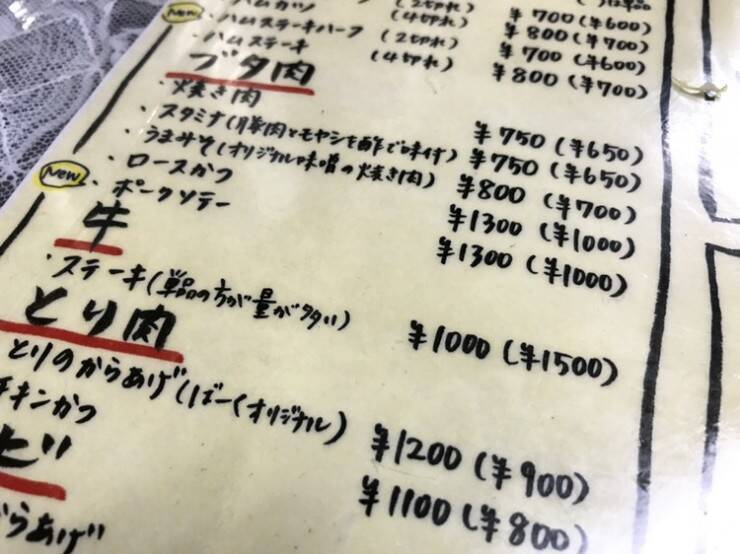 は単品
ハムカツ (2切れ) ¥700 (¥600)
(4切れ) ¥800 (¥700)
New ・ハムステーキハーフ (2切れ) ¥700 (¥600)
・ハムステーキ (4切れ) ¥800 (¥700)
ブタ肉
・焼き肉 ¥750 (¥650)
・スタミナ(豚肉とモヤシを酢で味付) ¥750 (¥650)
・うまみそ(オリジナル味噌の焼き肉) ¥800 (¥700)
・ロースかつ ¥1300 (¥1000)
New ・ポークソテー ¥1300 (¥1000)
牛
・ステーキ(単品の方が量が多い) ¥1000 (¥1500)
とり肉
とりのからあげ(ばーくオリジナル) ¥1200 (¥900)
チキンかつ ¥1100 (¥800)
らあげ